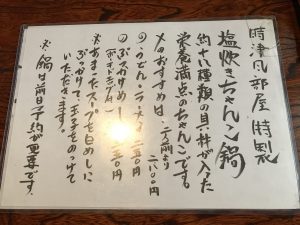 時津風部屋特製
塩炊きちゃんこ鍋
約十八種類の具材が入った
栄養満点のちゃんこです。
二人前より 二八〇〇円
〆のおすすめは、
◎うどん・ラーメン 二五〇円
◎ぶっかけめし 二五〇円
※あまったスープを白めしに
ぶっかけて、玉子をのっけて
いただきます。
※鍋は前日予約が必要です。